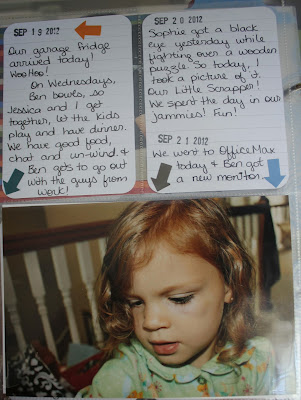 SEP 19 2012
Our garage fridge
arrived today!
Woo Hoo!
On Wednesdays,
Ben bowls, so
Jessica and I get
together, let the kids
play and have dinner.
We have good food,
chat and un-wind. &
Ben gets to go out
with the guys from
work!
SEP 20 2012
Sophie got a black
eye yesterday while
fighting over a wooden
puzzle. So today, I
took a picture of it.
Our Little Scrapper!
We spent the day in our
jammies! Fun!
SEP 21 2012
We went to OfficeMax
today & Ben got
a new monitor.